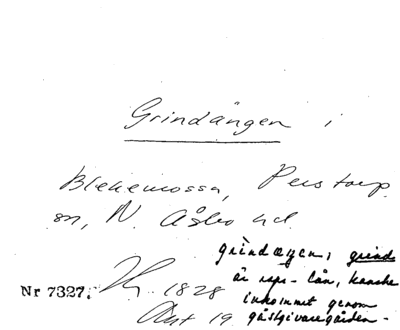 Grindängen i
Blekemossa, Perstorp
sn, N. Åsbo hd.
grindæɳen; grind
är rspr-lån, kanske
inkommet genom
gästgivaregården-
Nr 7327.
1828
Akt 19